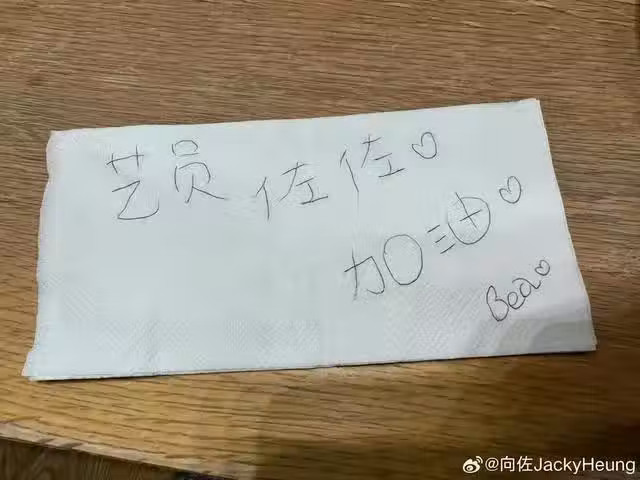 艺员佐佐♡
加油♡
Bea♡
@向佐JackyHeung